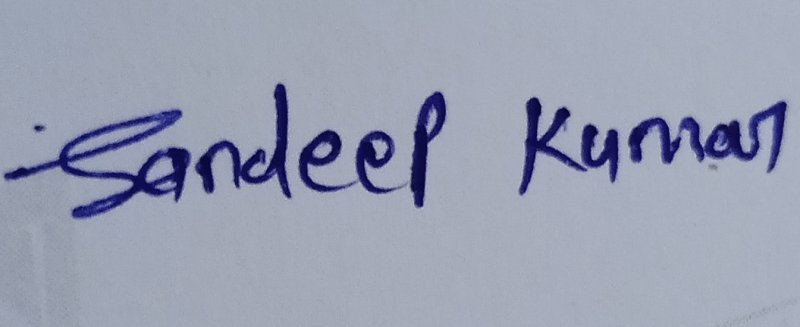 Sandeep Kumar